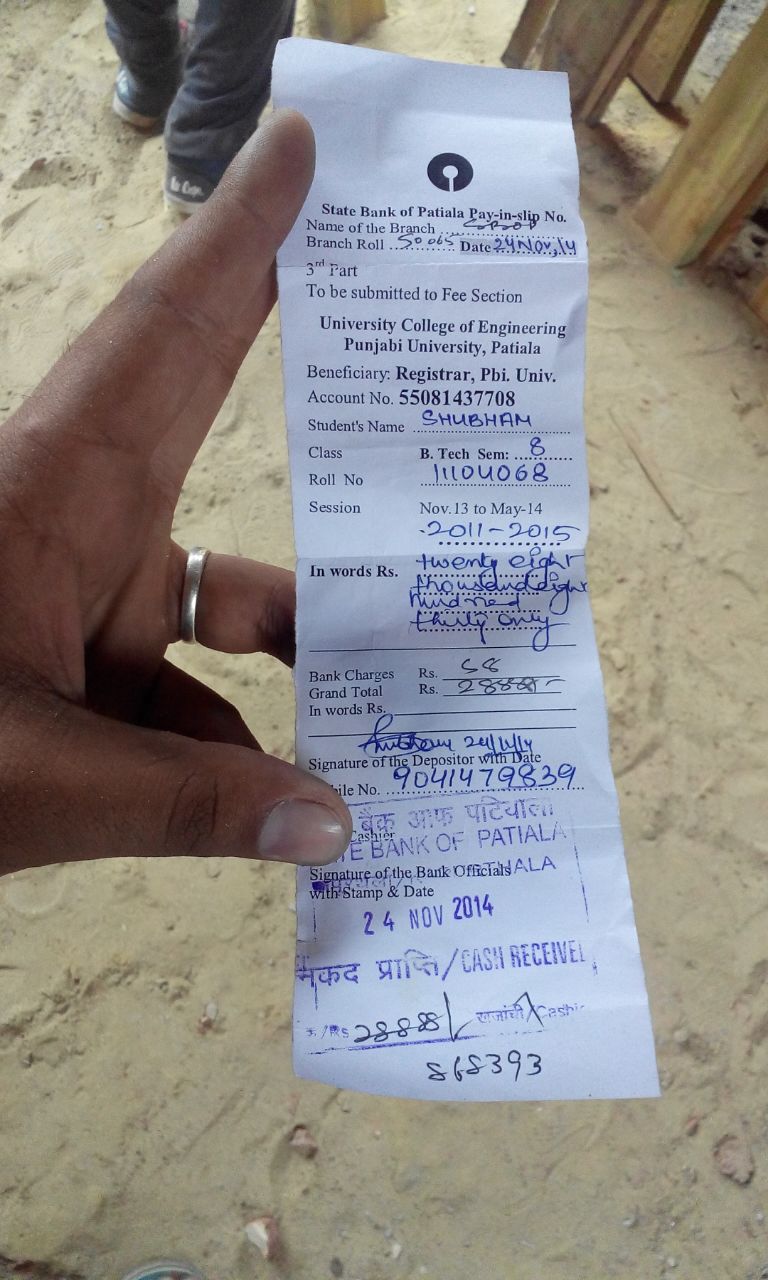 State Bank of Patiala Pay-in-slip No.
Name of the Branch
Branch Roll 50065 Date 24 Nov, 14
3rd Part
To be submitted to Fee Section
University College of Engineering
Punjabi University, Patiala
Beneficiary: Registrar, Pbi. Univ.
Account No. 55081437708
Student's Name SHUBHAM
Class B. Tech Sem: 8
Roll No 11104068
Session Nov.13 to May-14
2011-2015
In words Rs. twenty eight
thousand eight
hundred
thirty only
Bank Charges Rs. 58
Grand Total Rs. 28888/-
In words Rs.
Shubham 24/11/14
Signature of the Depositor with Date
ile No. 9041479839
बैंक आफ पटियाला
Cashier
TE BANK OF PATIALA
Signature of the Bank Officials
THALA
with Stamp & Date
24 NOV 2014
नकद प्राप्ति/CASH RECEIVE
रु/Rs 28888/ खजांची/Cashi
868393